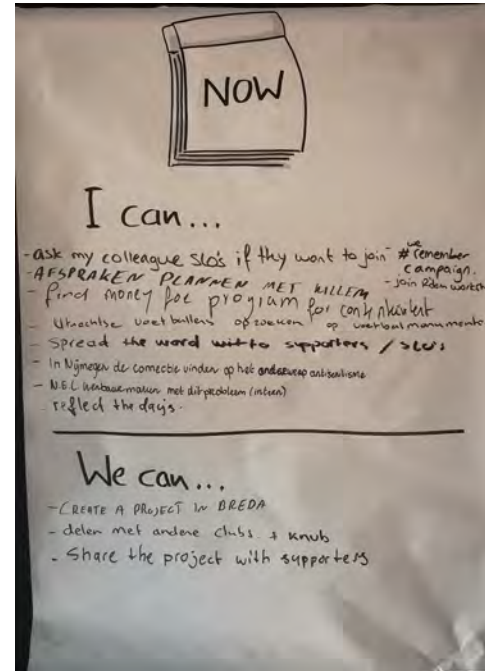 NOW
I can...
- ask my colleague slo's if they want to join - # we remember
campaign.
- AFSPRAKEN PLANNEN MET WILLEM
- join
- find money for program for
- Utrechtse voetballers opzoeken op voetbalmonument
- Spread the word to supporters / SLO's
- In Nijmegen de connectie vinden op het onderwerp antisemitisme
- N.E.C. maken met dit probleem (intern)
- reflect the days.
We can...
- CREATE A PROJECT IN BREDA
- delen met andere clubs + KNVB
- Share the project with supporters